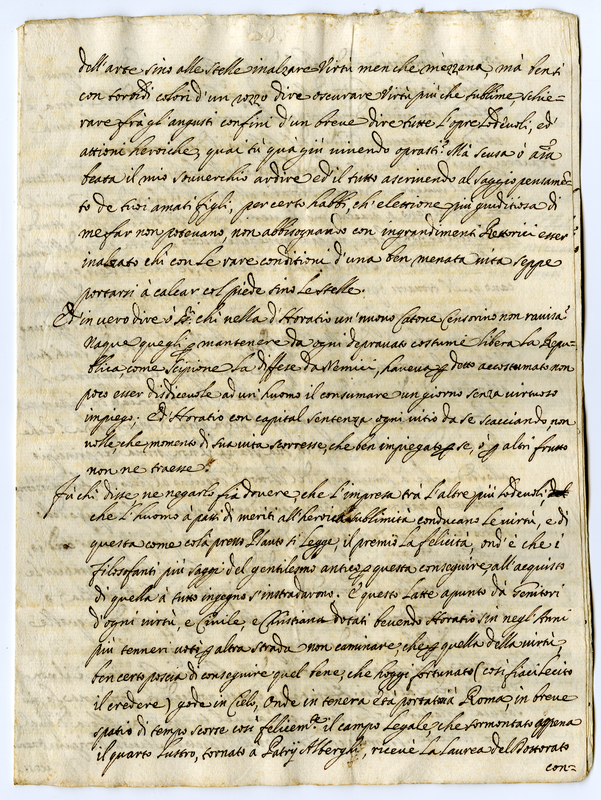 dell'arte sino alle stelle inalzare Virtù men che mezzana, mà bensi
con torbidi colori d'un rozzo dire oscurare Virtù più che sublime, schie-
rare frà gl'angusti confini d'un breve dire tutte l'opre lodevoli, ed
attioni heroiche, quai tù qua giù vivendo oprasti? Mà scusa ò
beata il mio soverchio ardire ed il tutto ascrivendo al saggio pensamē-
to de tuoi amati figli, per certo habbi, ch'elettione più giuditiosa di
me far non potevano, non abbisognando con ingrandimenti Rettorici esser
inalzato chi con le rare conditioni d'una ben menata vita seppe
portarsi à calcar col piede sino le stelle.
Ed in vero dire ò chi nella d'Horatio un nuovo Catone Censorino non ravisa?
Naque quegli p mantenere da ogni depravato costumi libera la Repu-
blica, come Scipione la difese da Nemici, haveva p detto accostumato non
poco esser disdicevole ad un huomo il consumare un giorno senza virtuoso
impiego. Ed Horatio con capital sentenza ogni vitio da se scacciando non
volle, che momento di sua vita scorresse, che ben impiegato p se, ò p altri frutto
non ne traesse.
Fù chi disse, ne negarlo fia dovere, che l'impresa trà l'altre più lodevoli
che l'huomo à passi di meriti all'heroica sublimità conducano le virtù, e di
questa come cosa presso Plauto si legge, il premio la felicità, ond'è che i
filosofanti più saggi del gentilesmo antico p questa conseguire, all'acquisto
di quella à tutto ingegno s'instradarono. E questo latte apunto da Genitori
d'ogni virtù, e Civile, e Christiana dotati bevendo Horatio sin negl'Anni
più tenneri p altra strada non caminare, che p quella della virtù,
ben certo poscia di conseguire quel bene, che hoggi fortunato (così fiaci lecito
il credere) gode in Cielo, Onde in tenera età portatosi à Roma in breve
spatio di tempo scorse così felicem.te il campo Legale, che sormontato appena
il quarto lustro, tornato à Patrij Alberghi, ricevè la laurea del Dottorato
con-